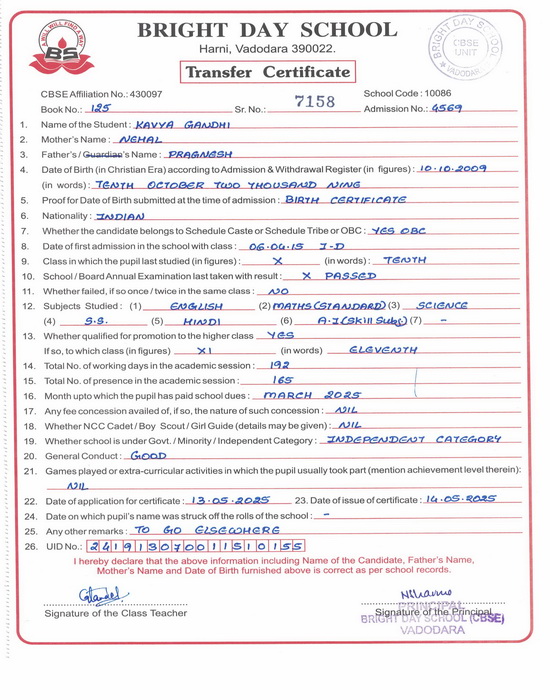 A WILL WILL FIND A WAY
BS
BRIGHT DAY SCHOOL
Harni, Vadodara 390022.
BRIGHT DAY SCHOOL
CBSE
UNIT
VADODAR
Transfer Certificate
CBSE Affiliation No.: 430097 School Code : 10086
Book No.: 125 Sr. No.: 7158 Admission No.: 4569
1. Name of the Student : KAVYA GANDHI
2. Mother's Name : NEHAL
3. Father's / Guardian's Name : PRAGNESH
4. Date of Birth (in Christian Era) according to Admission & Withdrawal Register (in figures) : 10.10.2009
(in words) : TENTH OCTOBER TWO THOUSAND NINE
5. Proof for Date of Birth submitted at the time of admission : BIRTH CERTIFICATE
6. Nationality : INDIAN
7. Whether the candidate belongs to Schedule Caste or Schedule Tribe or OBC : YES OBC
8. Date of first admission in the school with class : 06.04.15 I-D
9. Class in which the pupil last studied (in figures) : X (in words) : TENTH
10. School / Board Annual Examination last taken with result : X PASSED
11. Whether failed, if so once / twice in the same class : NO
12. Subjects Studied : (1) ENGLISH (2) MATHS (STANDARD) (3) SCIENCE
(4) S.S. (5) HINDI (6) A.I (Skill Subj) (7) -
13. Whether qualified for promotion to the higher class YES
If so, to which class (in figures) XI (in words) ELEVENTH
14. Total No. of working days in the academic session : 192
15. Total No. of presence in the academic session : 165
16. Month upto which the pupil has paid school dues : MARCH 2025
17. Any fee concession availed of, if so, the nature of such concession : NIL
18. Whether NCC Cadet / Boy Scout / Girl Guide (details may be given) : NIL
19. Whether school is under Govt. / Minority / Independent Category : INDEPENDENT CATEGORY
20. General Conduct : GOOD
21. Games played or extra-curricular activities in which the pupil usually took part (mention achievement level therein):
NIL
22. Date of application for certificate : 13.05.2025 23. Date of issue of certificate : 14.05.2025
24. Date on which pupil's name was struck off the rolls of the school : -
25. Any other remarks : TO GO ELSEWHERE
26. UID No.: 241913070011510155
I hereby declare that the above information including Name of the Candidate, Father's Name,
Mother's Name and Date of Birth furnished above is correct as per school records.
Signature of the Class Teacher Signature of the Principal
PRINCIPAL
BRIGHT DAY SCHOOL (CBSE)
VADODARA